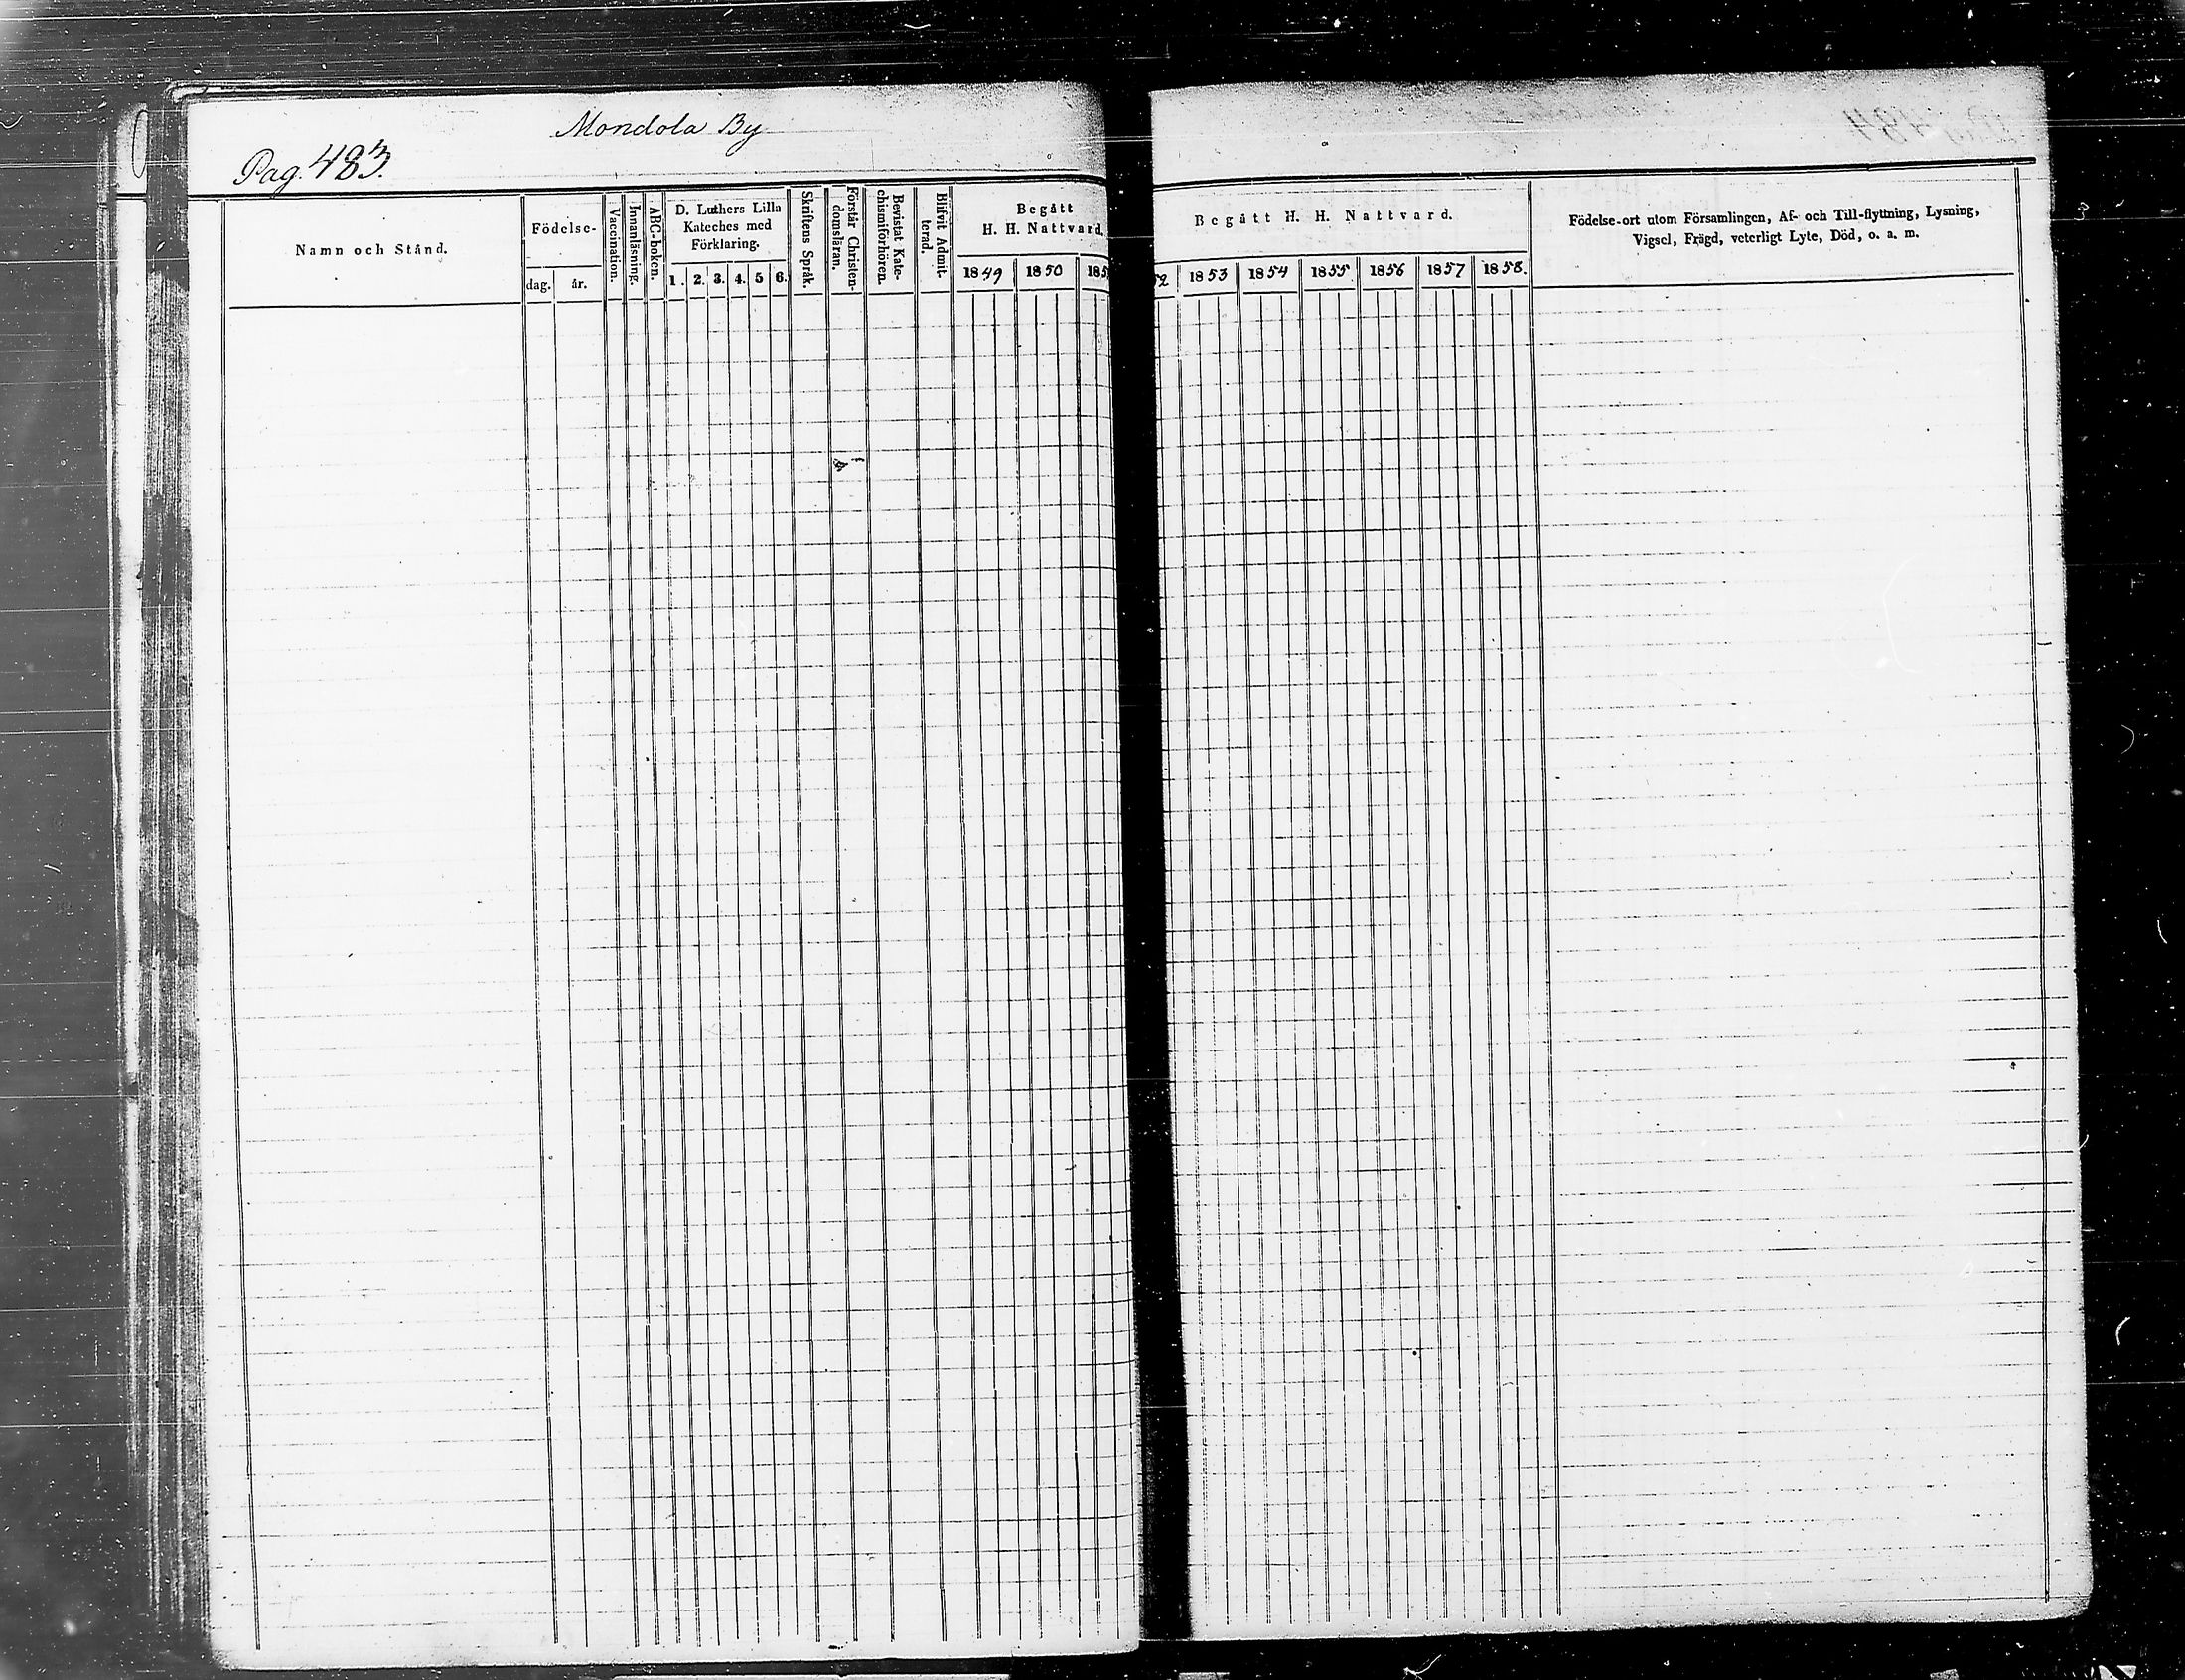 Mondola By
Pag. 483.
Namn och Stånd.
Födelse-
dag.
år.
Vaccination.
Innanläsning.
ABC-boken.
D. Luthers Lilla
Kateches med
Förklaring.
1. 2. 3. 4. 5 6.
Skriftens Språk.
Förstår Christen-
domsläran.
Bevistat Kate-
chismiförhören.
Blifvit Admit-
terad.
Begått
H. H. Nattvard.
1849 1850 185
Begått H. H. Nattvard.
52 1853 1854 1855 1856 1857 1858.
Födelse-ort utom Församlingen, Af- och Till-flyttning, Lysning,
Vigsel, Frägd, veterligt Lyte, Död, o. a. m.